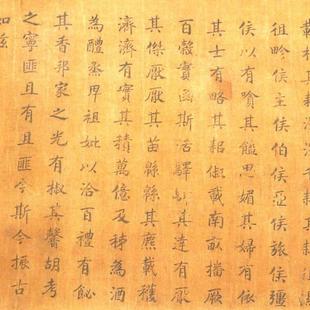 柞其耕澤澤千耦其耘徂隰
徂畛侯主侯伯侯亞侯旅侯彊
侯以有嗿其饁思媚其婦有依
其士有略其耜俶載南畝播厥
百穀實函斯活驛驛其達有厭
其傑厭厭其苗緜緜其麃載穫
濟濟有實其積萬億及秭為酒
為醴烝畀祖妣以洽百禮有飶
其香邦家之光有椒其馨胡考
之寧匪且有且匪今斯今振古
如茲